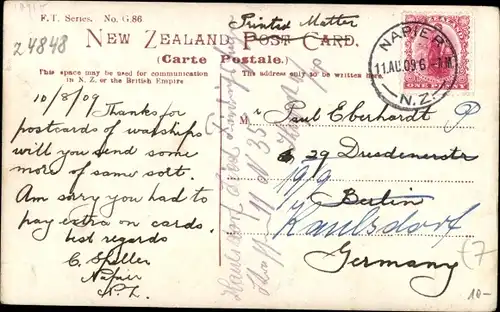 F.T. Series. No. G.86.
24848
Printed Matter
NEW ZEALAND POST CARD.
(Carte Postale.)
This space may be used for communication
in N.Z. or the British Empire
The address only to be written here.
NAPIER
11.AU.09.6
N.Z.
ONE PENNY
10/8/09
Thanks for
postcards of warships
will you send some
more of same sort.
Am sorry you had to
pay extra on cards.
best regards
C. Speller
Napier
N.Z.
M Paul Eberhardt
29 Dresdenerstr
Berlin
Kaulsdorf
Germany
(7
10-